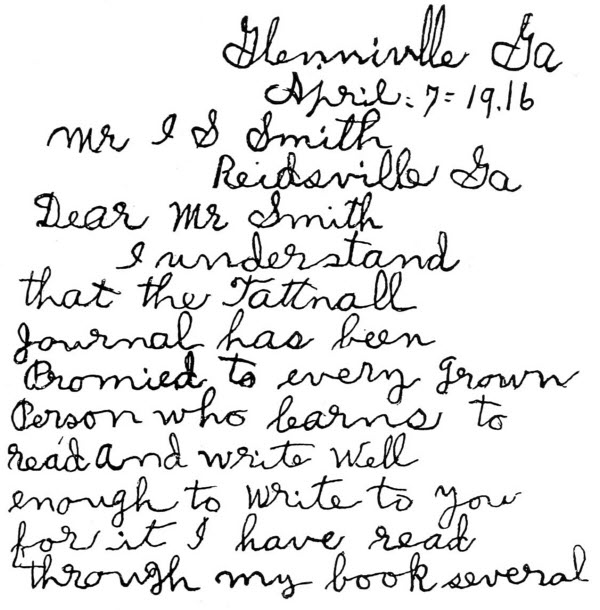 Glennivlle Ga
April. 7=19.16
Mr I S Smith
Reidsville Ga
Dear Mr Smith
I understand
that the Tattnall
Journal has been
Promied to every grown
Person who learns to
read and write well
enough to write to you
for it I have read
through my book several